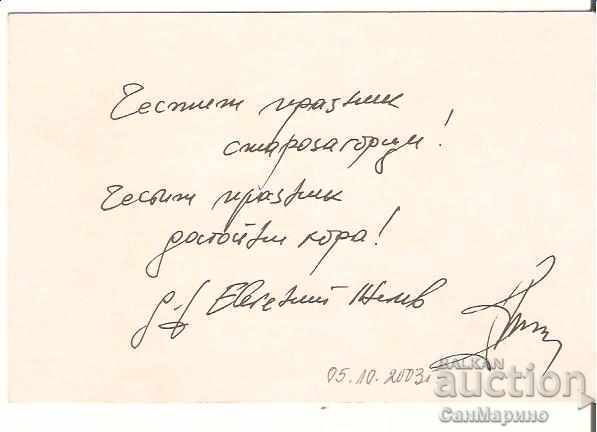 Честит празник
старозагорци!
Честит празник
достойни хора!
д-р Евгений Желев
05.10.2003г
BALKAN
auction
СанМарино